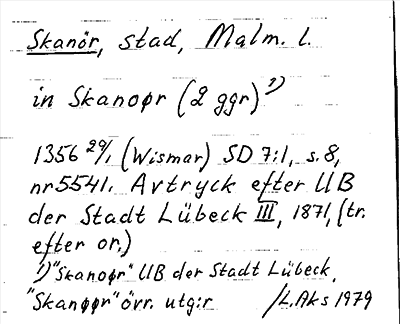 Skanör, stad, Malm. l.
in Skanoør (2 ggr) 1)
1356 29/1 (Wismar) SD 7:1, s. 8,
nr 5541. Avtryck efter UB
der Stadt Lübeck III, 1871, (tr.
efter or.)
1) "Skanoør" UB der Stadt Lübeck,
"Skanøør" övr. utg:r /L.Aks 1979